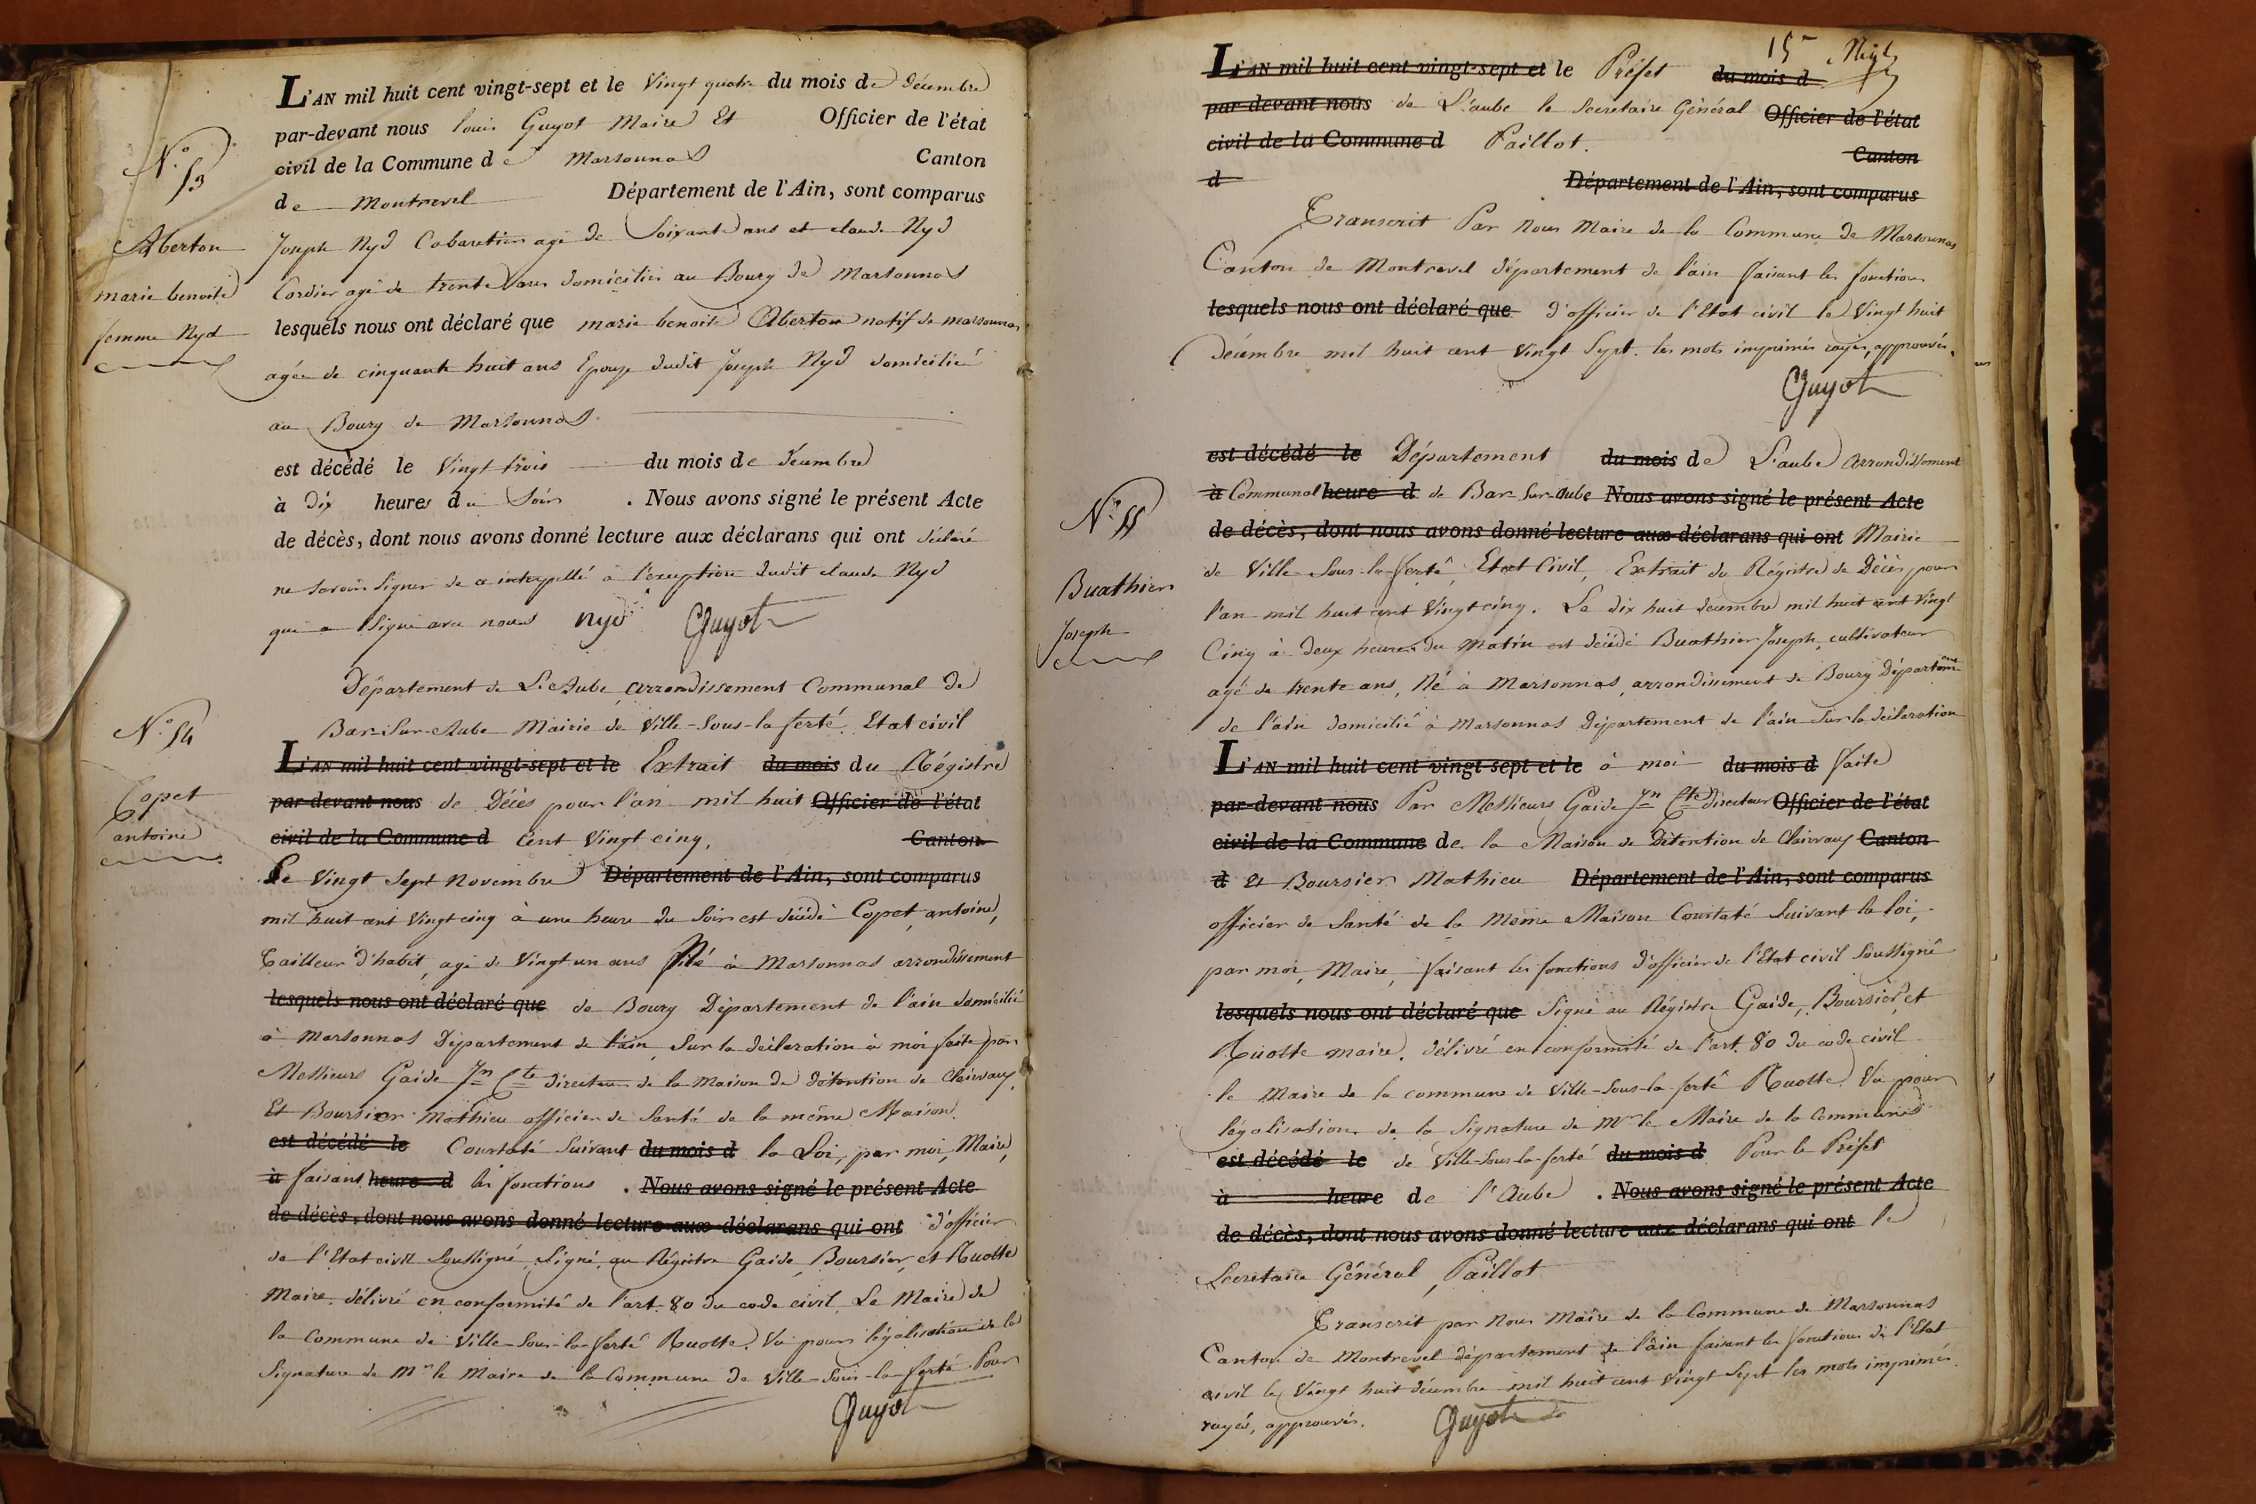 L'AN mil huit cent vingt-sept et le Vingt quatre du mois de décembre
par-devant nous louis Guyot Maire Et Officier de l'état
civil de la Commune de Marsonnas Canton
de Montrevel Département de l'Ain, sont comparus
N.° 53
Aberton
marie benoite
femme Nyd
Joseph Nyd Cabaretier agé de Soixante ans et claude Nyd
Cordier agé de trente ans domiciliés au Bourg de Marsonnas
lesquels nous ont déclaré que marie benoite Aberton natif de marsonnas
agée de cinquante huit ans Epouse dudit Joseph Nyd domicilié
au Bourg de Marsonnas
est décédé le Vingt trois du mois de décembre
à dix heures du Soir . Nous avons signé le présent Acte
de décès, dont nous avons donné lecture aux déclarans qui ont déclaré
ne savoir signer de ce interpellé à l'exception dudit claude Nyd
qui a Signé avec nous nyd Guyot
N.° 54
Copet
antoine
Département de L'Aube, arrondissement Communal de
Bar-Sur-Aube Mairie de Ville-Sous-la ferté. Etat civil
L'AN mil huit cent vingt-sept et le Extrait du mois du Régistre
par-devant nous de Décès pour l'an mil huit Officier de l'état
civil de la Commune d Cent Vingt cinq, Canton
Le Vingt Sept Novembre Département de l'Ain, sont comparus
mil huit cent vingt cinq à une heure du Soir est décédé Copet, antoine,
Tailleur d'habit, agé de Vingt un ans Né à Marsonnas arrondissement
lesquels nous ont déclaré que de Bourg Département de l'ain domicilié
à Marsonnas Département de l'ain, Sur la déclaration à moi faite par
Messieurs Gaide Jn Cte directeur de la maison de détention de Clairvaux,
Et Boursier Mathieu officier de Santé de la même Maison.
est décédé le Constaté Suivant du mois d la Loi, par moi, Maire,
à faisant heure d les fonctions . Nous avons signé le présent Acte
de décès, dont nous avons donné lecture aux déclarans qui ont d'officier
de l'Etat civil Soussigné Signé, au Régistre Gaide, Boursier, et Ruotte
Maire. délivré en conformité de l'art. 80 du code civil. Le Maire de
la commune de Ville-Sous-la-ferté Ruotte. Vu pour légalisation de la
Signature de Mr le Maire de la Commune de Ville-Sous-la-ferté. Pour
Guyot
15 Nyd
L'AN mil huit cent vingt-sept et le Préfet du mois d
par-devant nous de L'aube le Secretaire Général Officier de l'état
civil de la Commune d Paillot. Canton
d Département de l'Ain, sont comparus
Transcrit Par Nous Maire de la Commune de Marsonnas
Canton de Montrevel département de l'ain faisant les fonctions
lesquels nous ont déclaré que d'officier de l'Etat civil le Vingt huit
décembre mil huit cent Vingt Sept. les mots imprimés rayés, approuvés.
Guyot
N.° 55
Buathier
Joseph
est décédé le Département du mois de L'aube arrondissement
à Communal heure d de Bar Sur-Aube Nous avons signé le présent Acte
de décès, dont nous avons donné lecture aux déclarans qui ont Mairie
de Ville-Sous-la-ferté, Etat Civil, Extrait du Régistre de Décès pour
l'an mil huit cent Vingt cinq. Le dix huit décembre mil huit cent vingt
Cinq à deux heures du Matin est décédé Buathier Joseph, cultivateur
agé de trente ans, Né à Marsonnas, arrondissement de Bourg Département
de l'ain domicilié à Marsonnas Département de l'ain Sur la déclaration
L'AN mil huit cent vingt-sept et le à moi du mois d faite
par-devant nous Par Messieurs Gaide Jn Cte directeur Officier de l'état
civil de la Commune de la Maison de Détention de Clairvaux Canton
d Et Boursier Mathieu Département de l'Ain, sont comparus
officier de Santé de la Même Maison Constaté Suivant la loi,
par moi, Maire, faisant les fonctions d'officier de l'Etat civil Soussigné
lesquels nous ont déclaré que Signé au Régistre Gaide, Boursier, et
Ruotte maire. délivré en conformité de l'art. 80 du code civil
le Maire de la commune de Ville-Sous-la-ferté Ruotte. Vu pour
légalisation de la Signature de Mr le Maire de la Commune
est décédé le de Ville-Sous-la-ferté du mois d Pour le Préfet
à heure de l'Aube . Nous avons signé le présent Acte
de décès, dont nous avons donné lecture aux déclarans qui ont le
Secretaire Général, Paillot
Transcrit par Nous Maire de la Commune de Marsonnas
Canton de Montrevel département de l'ain faisant les fonctions de l'Etat
civil le Vingt huit décembre mil huit cent Vingt Sept les mots imprimés
rayés, approuvés. Guyot